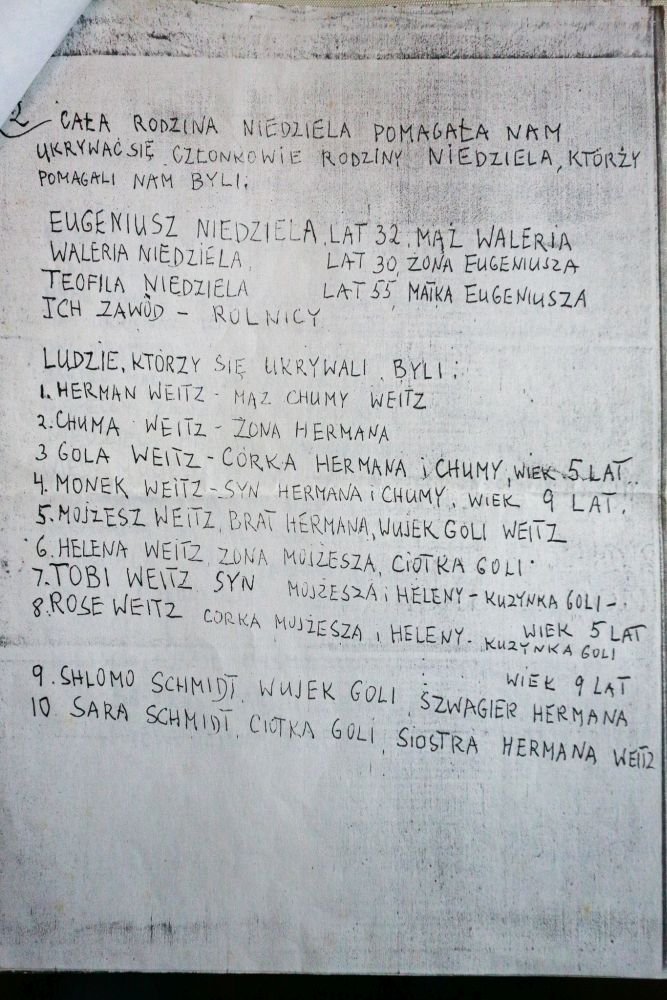 2
CAŁA RODZINA NIEDZIELA POMAGAŁA NAM
UKRYWAĆ SIĘ CZŁONKOWIE RODZINY NIEDZIELA, KTÓRZY
POMAGALI NAM BYLI.
EUGENIUSZ NIEDZIELA, LAT 32, MĄŻ WALERIA
WALERIA NIEDZIELA, LAT 30, ŻONA EUGENIUSZA
TEOFILA NIEDZIELA LAT 55, MATKA EUGENIUSZA
ICH ZAWÓD - ROLNICY
LUDZIE, KTÓRZY SIĘ UKRYWALI BYLI:
1. HERMAN WEITZ - MĄZ CHUMY WEITZ
2. CHUMA WEITZ - ŻONA HERMANA
3 GOLA WEITZ - CÓRKA HERMANA i CHUMY, WIEK 5 LAT.
4. MONEK WEITZ - SYN HERMANA i CHUMY, WIEK 9 LAT.
5. MOJŻESZ WEITZ, BRAT HERMANA, WUJEK GOLI WEITZ
6. HELENA WEITZ, ZONA MOJŻESZA, CIOTKA GOLI.
7. TOBI WEITZ SYN MOJŻESZA i HELENY - KUZYNKA GOLI -
WIEK 5 LAT
8. ROSE WEITZ CÓRKA MOJŻESZA i HELENY - KUZYNKA GOLI
WIEK 9 LAT
9. SHLOMO SCHMIDT, WUJEK GOLI, SZWAGIER HERMANA
10 SARA SCHMIDT, CIOTKA GOLI, SIOSTRA HERMANA WEITZ